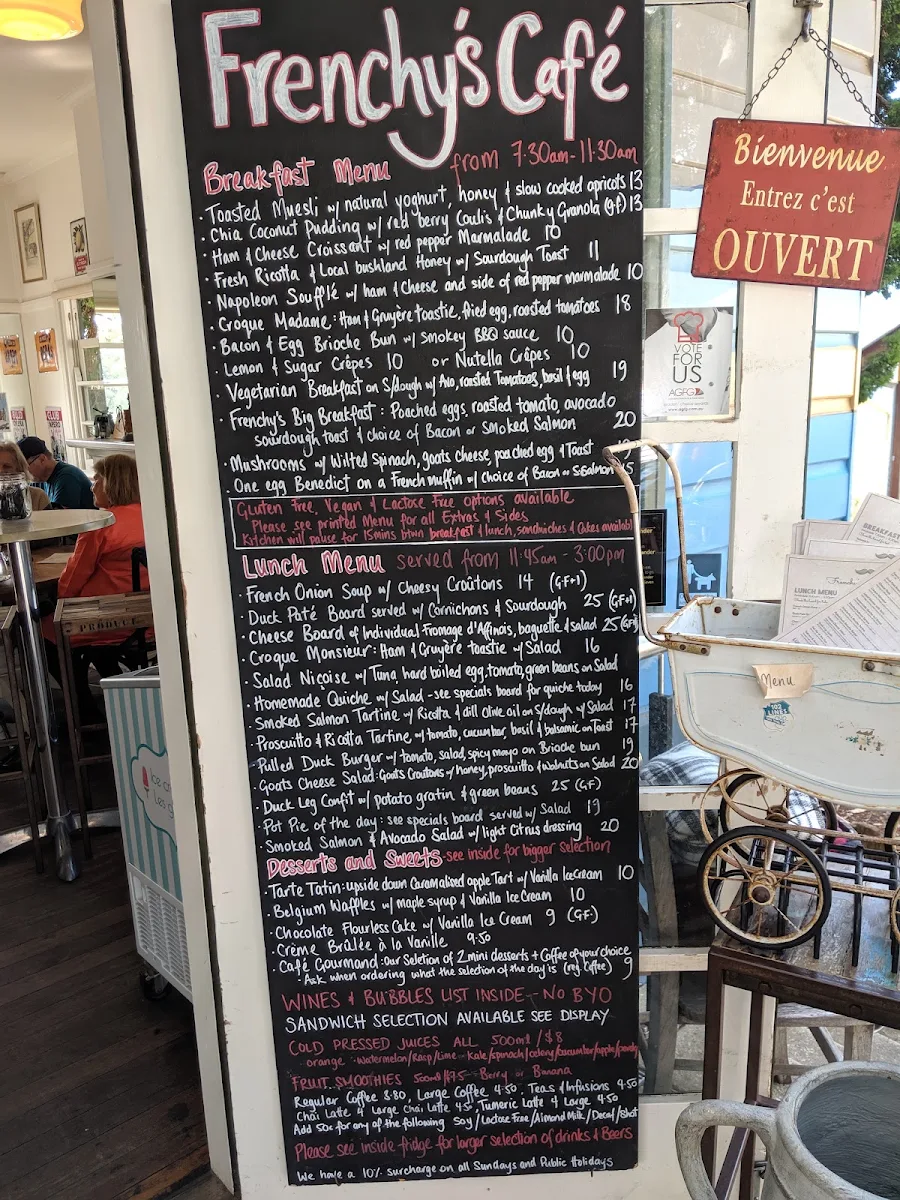 Frenchy's Café
Breakfast Menu from 7.30am-11:30am
· Toasted Muesli w/ natural yoghurt, honey & slow cooked apricots 13
· Chia Coconut Pudding w/ red berry Coulis & Chunky Granola (gf) 13
· Ham & Cheese Croissant w/ red pepper Marmalade 10
· Fresh Ricotta & Local bushland Honey w/ Sourdough Toast 11
· Napoleon Soufflé w/ ham & Cheese and side of red pepper marmalade 10
· Croque Madame: Ham & Gruyère toastie, fried egg, roasted tomatoes 18
· Bacon & Egg Brioche Bun w/ Smokey BBQ sauce 10
· Lemon & Sugar Crêpes 10 or Nutella Crêpes 10
· Vegetarian Breakfast on S/dough w/ Avo, roasted Tomatoes, basil & egg 19
· Frenchy's Big Breakfast: Poached eggs, roasted tomato, avocado
sourdough toast & choice of Bacon or Smoked Salmon 20
· Mushrooms w/ Wilted spinach, goats cheese, poached egg & Toast
· One egg Benedict on a French muffin w/ choice of Bacon or S.Salmon
Gluten Free, Vegan & Lactose Free options available
Please see printed Menu for all Extras & Sides
Kitchen will pause for 15mins btwn breakfast & lunch, sandwiches & Cakes availabl
Lunch Menu served from 11:45am - 3:00pm
· French Onion Soup w/ Cheesy Croûtons 14 (GF+1)
· Duck Pâté Board served w/ Cornichons & Sourdough 25 (GF+1)
· Cheese Board of Individual Fromage d'Affinais, baguette & salad 25
· Croque Monsieur: Ham & Gruyère toastie w/ Salad 16
· Salad Niçoise w/ Tuna, hard boiled egg, tomato, green beans on Salad
· Homemade Quiche w/ Salad - see specials board for quiche today 16
· Smoked Salmon Tartine w/ Ricotta & dill Olive oil on S/dough w/ Salad 17
· Proscuitto & Ricotta Tartine, w/ tomato, cucumber, basil & balsamic on Toast 17
· Pulled Duck Burger w/ tomato, salad, spicy mayo on Brioche bun 19
· Goats Cheese Salad: Goats Croutons w/ honey, proscuitto & walnuts on Salad 20
· Duck Leg Confit w/ potato gratin & green beans 25 (GF)
· Pot Pie of the day: see specials board served w/ Salad 19
· Smoked Salmon & Avocado Salad w/ light Citrus dressing 20
Desserts and Sweets - see inside for bigger selection
· Tarte Tatin: upside down Caramalised apple Tart w/ Vanilla Ice Cream 10
· Belgium Waffles w/ maple syrup & Vanilla Ice Cream 10
· Chocolate Flourless Cake w/ Vanilla Ice Cream 9 (GF)
· Crème Brûlée à la Vanille 9.50
· Café Gourmand: Our Seletion of 2 mini desserts + Coffee of your choice
· Ask when ordering what the selection of the day is (reg. Coffee) 9
WINES & BUBBLES LIST INSIDE - NO BYO
SANDWICH SELECTION AVAILABLE SEE DISPLAY
COLD PRESSED JUICES ALL 500ml / $8
orange - watermelon/Rasp/Lime - Kale/spinach/celery/cucumber/apple/
FRUIT SMOOTHIES 500ml Berry or Banana
Regular Coffee Large Coffee 4.50 Teas & Infusions 4.50
Chai Latte 4 Large Chai Latte 4.50 Tumeric Latte 4 Large 4.50
Add 50c for any of the following Soy / Lactose Free / Almond Milk / Decaf / Shot
Please see inside fridge for larger selection of drinks & Beers
We have a 10% surcharge on all Sundays and Public Holidays
Bienvenue
Entrez c'est
OUVERT
VOTE
FOR
US
AGFG
BREAKFAST
LUNCH MENU
Menu
PRODUCE